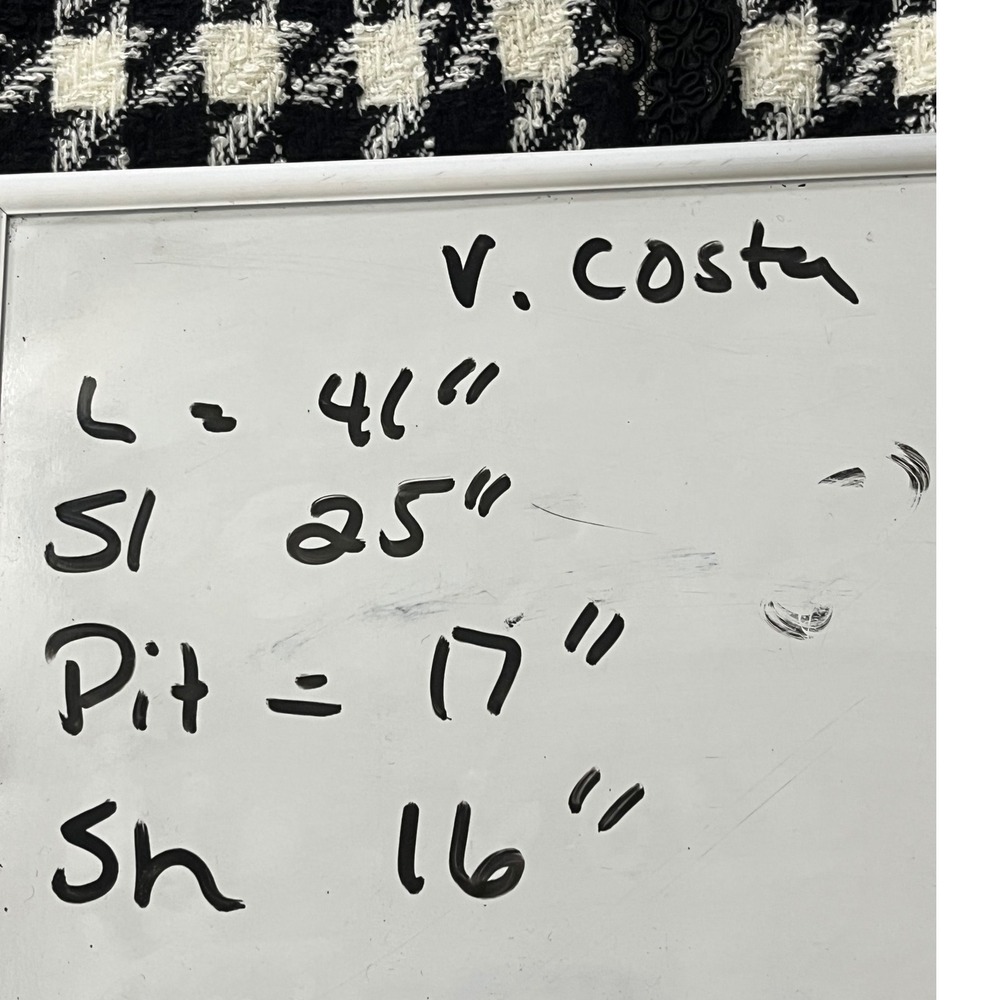 V. Costa
L = 41"
Sl 25"
Pit = 17"
Sh 16"